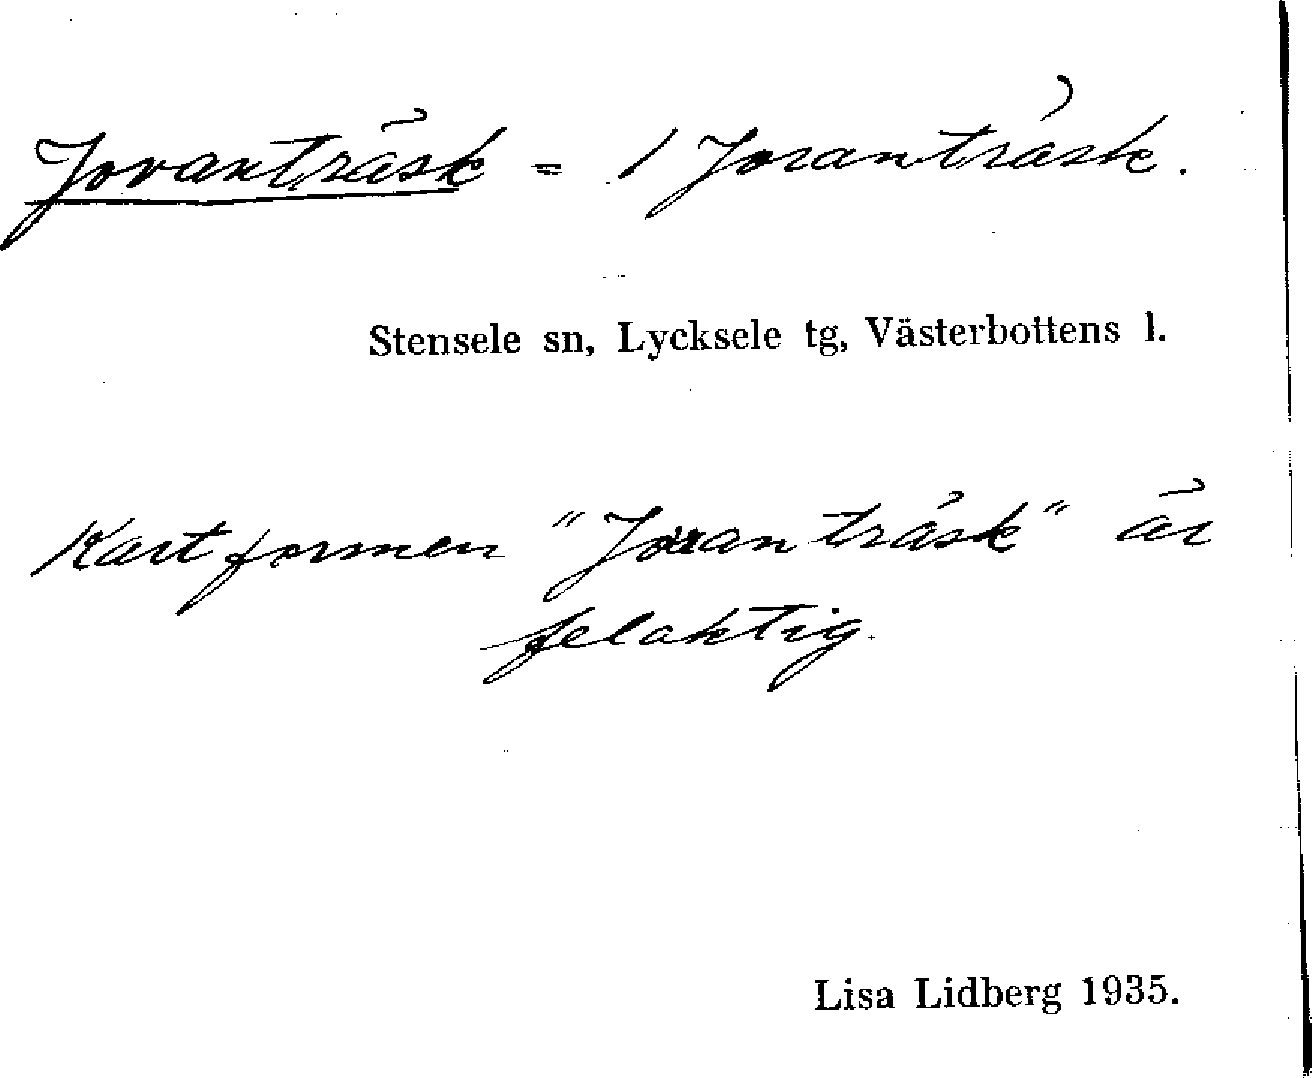 Jovanträsk = 1 Joranträsk.
Stensele sn, Lycksele tg, Västerbottens l.
Kartformen "Joranträsk" är
felaktig.
Lisa Lidberg 1935.